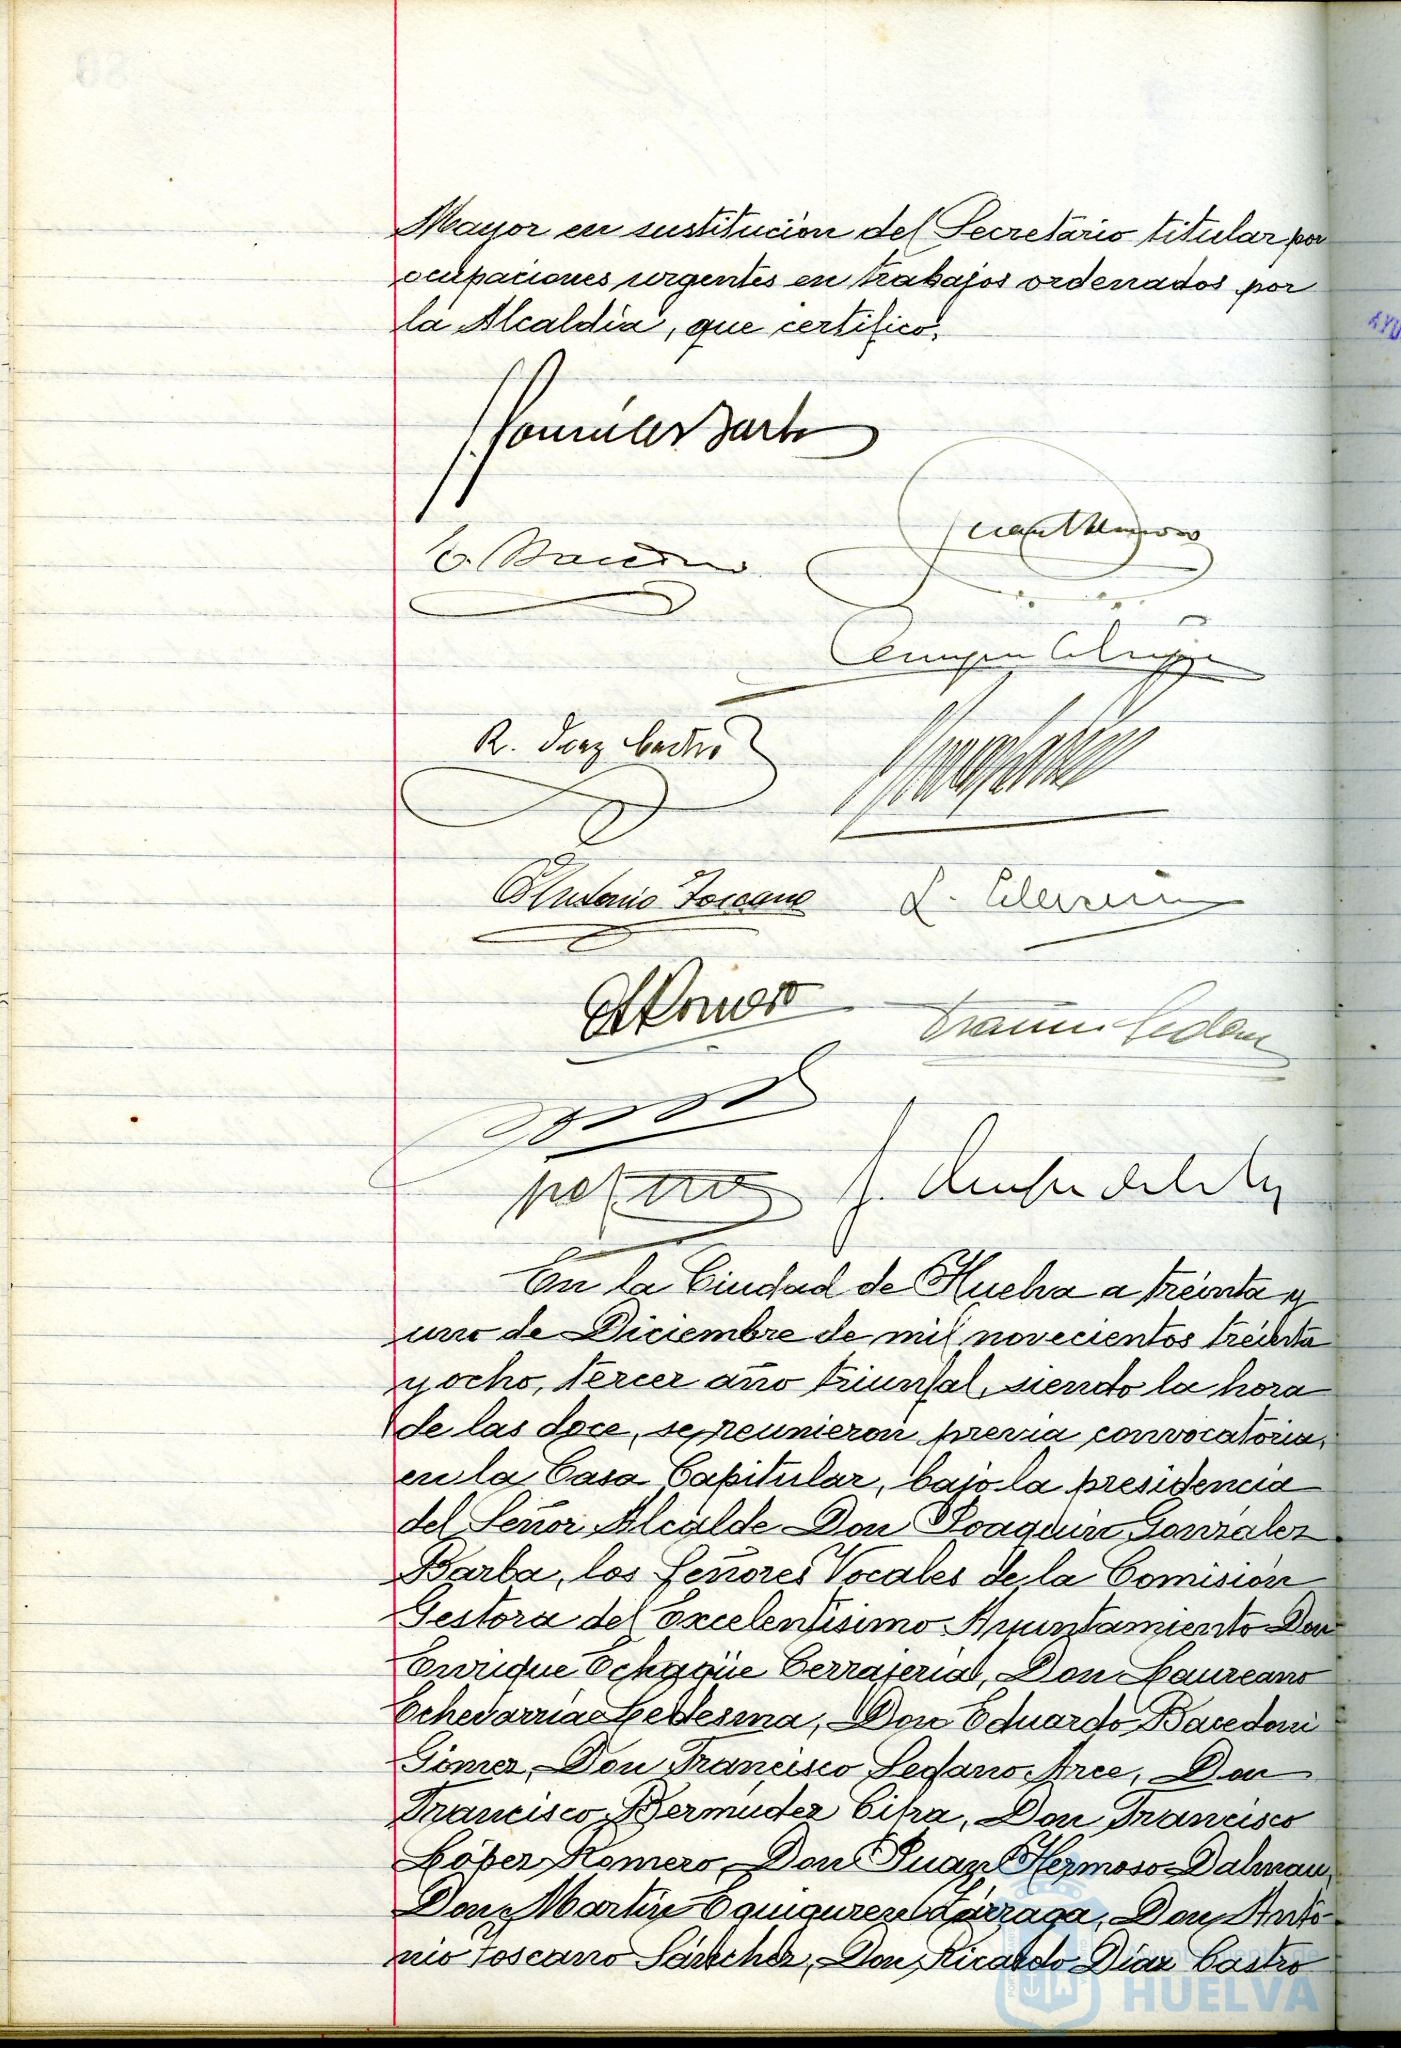 Mayor en sustitución del Secretario titular por
ocupaciones urgentes en trabajos ordenados por
la Alcaldía, que certifico.
R. Díaz Castro
Antonio Toscano
En la Ciudad de Huelva a treinta y
uno de Diciembre de mil novecientos treinta
y ocho, tercer año triunfal, siendo la hora
de las doce, se reunieron previa convocatoria,
en la Casa Capitular, bajo la presidencia
del Señor Alcalde Don Joaquin González
Barba, los Señores Vocales de la Comisión
Gestora del Excelentísimo Ayuntamiento Don
Enrique Echagüe Cerrajería, Don Laureano
Echevarría Ledesma, Don Eduardo Bacedoni
Gómez, Don Francisco Sedano Arce, Don
Francisco Bermúdez Cifra, Don Francisco
López Romero, Don Juan Hermoso Dalmau,
Don Martín Eguiguren Lárraga, Don Anto-
nio Toscano Sánchez, Don Ricardo Díaz Castro
Ayuntamiento de
HUELVA